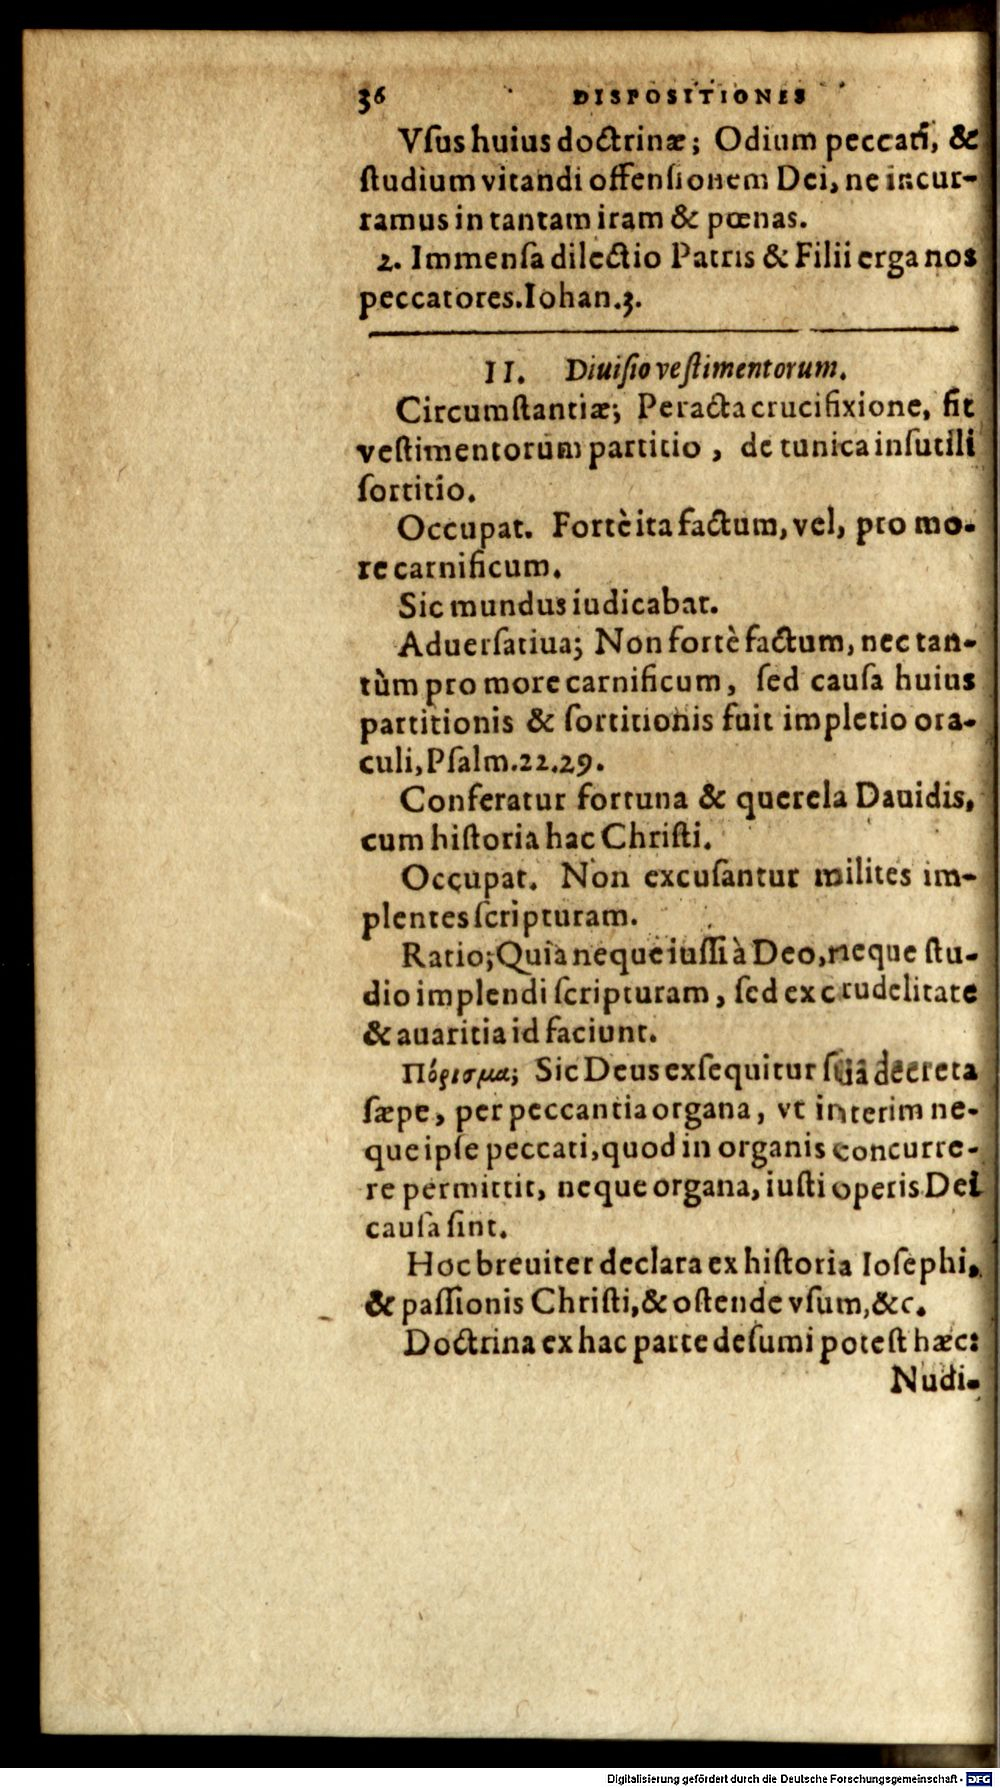 36 DISPOSITIONES
Vſus huius doctrinæ; Odium peccati, &
ſtudium vitandi offenſionem Dei, ne incur-
ramus in tantam iram & pœnas.
2. Immenſa dilectio Patris & Filii erga nos
peccatores. Iohan. 3.
II. Diuiſio veſtimentorum.
Circumſtantiæ; Peracta crucifixione, fit
veſtimentorum partitio, de tunica inſutili
ſortitio.
Occupat. Fortè ita factum, vel, pro mo-
re carnificum.
Sic mundus iudicabat.
Aduerſatiua; Non fortè factum, nec tan-
tùm pro more carnificum, ſed cauſa huius
partitionis & ſortitionis fuit impletio ora-
culi, Pſalm. 22. 29.
Conferatur fortuna & querela Dauidis,
cum hiſtoria hac Chriſti.
Occupat. Non excuſantur milites im-
plentes ſcripturam.
Ratio; Quia neque iuſſi à Deo, neque ſtu-
dio implendi ſcripturam, ſed ex crudelitate
& auaritia id faciunt.
Πόρισμα; Sic Deus exſequitur ſua decreta
ſæpe, per peccantia organa, vt interim ne-
que ipſe peccati, quod in organis concurre-
re permittit, neque organa, iuſti operis Dei
cauſa ſint.
Hoc breuiter declara ex hiſtoria Ioſephi,
& paſſionis Chriſti, & oſtende vſum, &c.
Doctrina ex hac parte deſumi poteſt hæc:
Nudi-
Digitalisierung gefördert durch die Deutsche Forschungsgemeinschaft - DFG